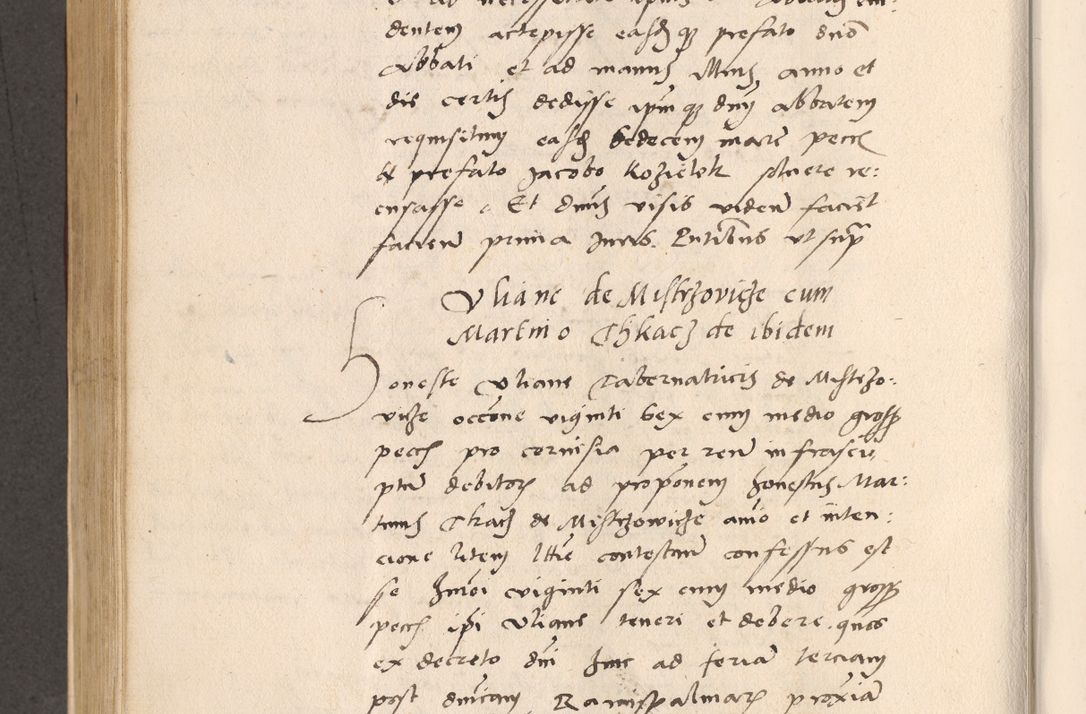 dentem accepisse easdemque prefato dno
Abbati et ad manus illius anno et
die certis dedisse ipmque dnm abbatem
requisitum easdem sedecem marc pecc
prefato Jacobo Kozielek solvere re:
cusasse. Et dnus visis viden faciet
facien prima Juris. Pntibus ut supra
Vliane de Mistrzovicze cum
Martino Thkacz de ibidem
Honeste Vliane Tabernatricis de Mistrzo:
vicze occone viginti sex cum medio gross
pecc pro cervisia per reum infrascri
ptum debitor ad proponem honestus Mar:
tinus Tkacz de Mistrzowicze animo et inten:
cione litem lttie contestan confessus est
se Jmoi viginti sex cum medio gross
pecc ipi Vliane teneri et debere. quos
ex decreto dni hinc ad feriam terciam
post dnicam Ramispalmar proxia